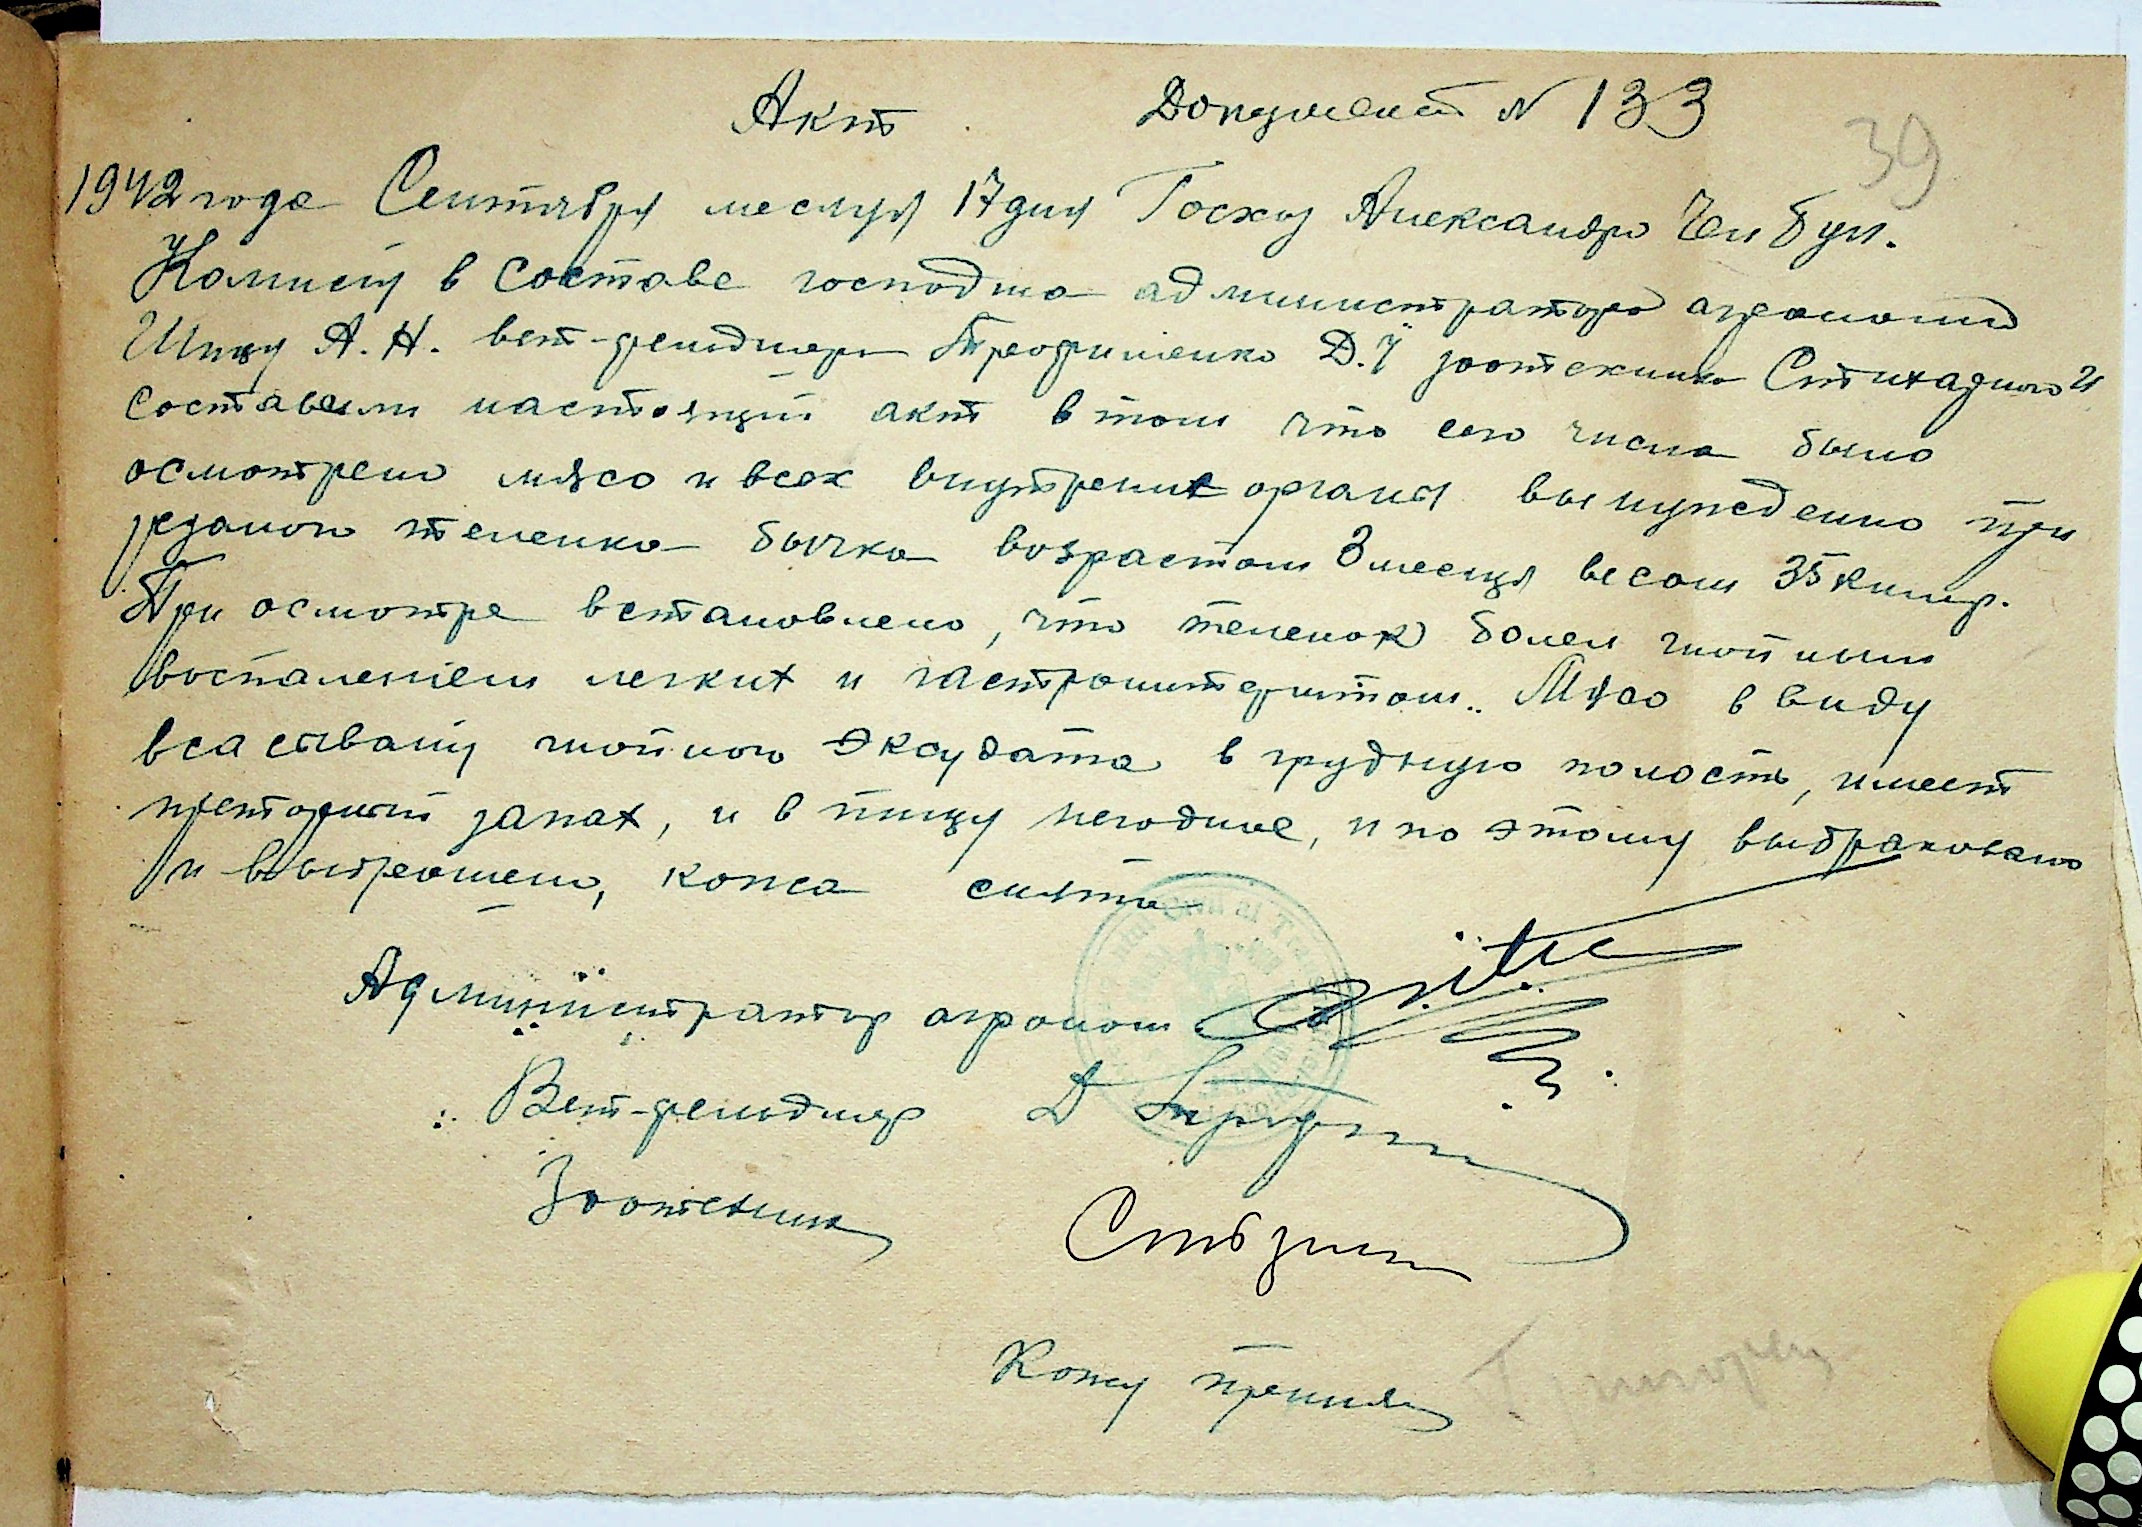 Акт Документ № 133
39
1942 года Сентября месяця 17 дня Госхоз Александра Чел Бул.
Комисия в составе господина администратора агронома
Шпицу А. Н. вет-фельдшера Трофименко Д. зоотехника
составили настоящий акт в том что сего числа было
осмотрено мясо и всех внутрених органы вынужденно при
резаного теленка бычка возрастом 3 месяця весом 35 килгр.
При осмотре встановлено, что теленок болел гнойным
воспаленіем легких и гастроинтеритом. Мясо в виду
всасываня гнойного эксудата в грудную полость, имеет
преторный запах, и в пищу негодное, и по этому выбраковано
и выброшено, кожа снята
Администратор агроном
Вет-фельдшер Д
Зоотехник
Кожу принял